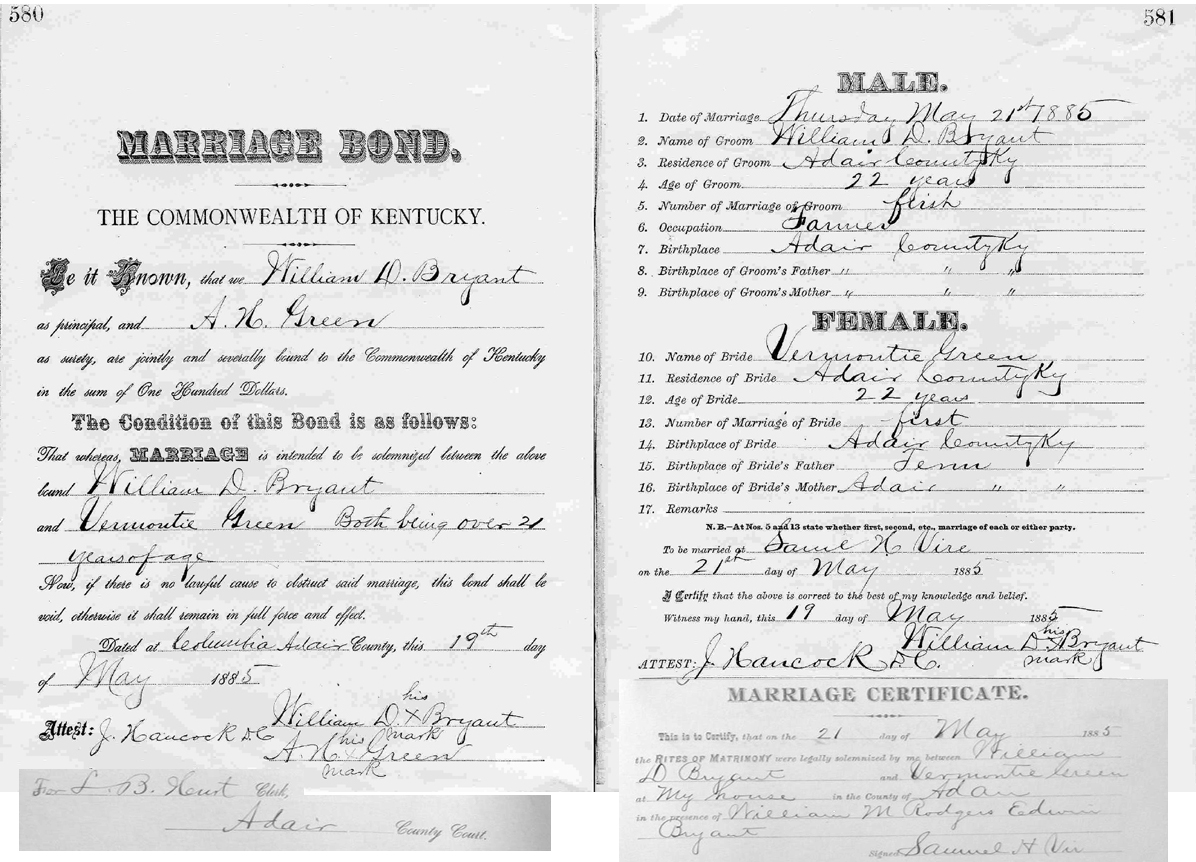 580
MARRIAGE BOND.
THE COMMONWEALTH OF KENTUCKY.
Be it Known, that we William D. Bryant
as principal, and A. H. Green
as surety, are jointly and severally bound to the Commonwealth of Kentucky
in the sum of One Hundred Dollars.
The Condition of this Bond is as follows:
That whereas, MARRIAGE is intended to be solemnized between the above
bound William D. Bryant
and Vermontie Green Both being over 21
years of age
Now, if there is no lawful cause to obstruct said marriage, this bond shall be
void, otherwise it shall remain in full force and effect.
Dated at Columbia Adair County, this 19th day
of May 1885
his
William D. X Bryant
mark
Attest: J. Hancock D.C.
his
A. H. X Green
mark
For L. B. Hurt Clerk,
Adair County Court.
581
MALE.
1. Date of Marriage Thursday May 21st 1885
2. Name of Groom William D. Bryant
3. Residence of Groom Adair County Ky
4. Age of Groom 22 years
5. Number of Marriage of Groom first
6. Occupation Farmer
7. Birthplace Adair County Ky
8. Birthplace of Groom's Father " " "
9. Birthplace of Groom's Mother " " "
FEMALE.
10. Name of Bride Vermontie Green
11. Residence of Bride Adair County Ky
12. Age of Bride 22 years
13. Number of Marriage of Bride first
14. Birthplace of Bride Adair County Ky
15. Birthplace of Bride's Father Tenn
16. Birthplace of Bride's Mother Adair " "
17. Remarks
N. B.—At Nos. 5 and 13 state whether first, second, etc., marriage of each or either party.
To be married at Saml H Vire
on the 21st day of May 1885
I Certify that the above is correct to the best of my knowledge and belief.
Witness my hand, this 19 day of May 1885
his
William D X Bryant
mark
ATTEST: J. Hancock D.C.
MARRIAGE CERTIFICATE.
This is to Certify, that on the 21 day of May 1885
the RITES OF MATRIMONY were legally solemnized by me between William
D Bryant and Vermontie Green
at My house in the County of Adair
in the presence of William M Rodgers Edwin
Bryant
Signed Samuel H Vir